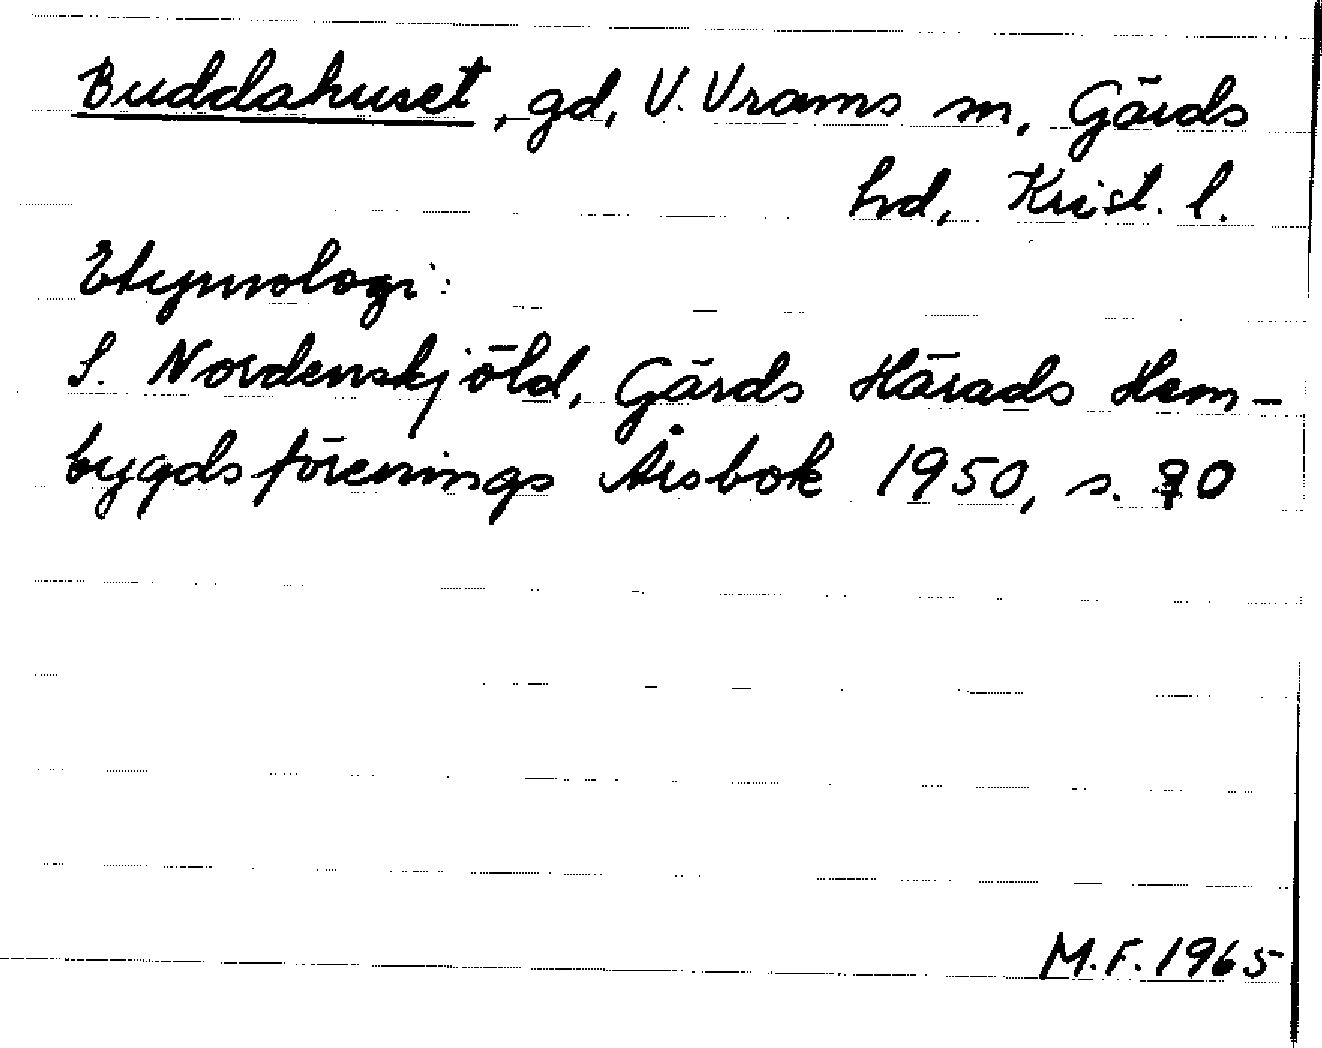 Buddahuset, gd, V. Vrams sn, Gärds
hd, Krist. l.
Etymologi:
S. Nordenskjöld, Gärds Härads Hem-
bygdsförenings Årsbok 1950, s. 70
M.F. 1965